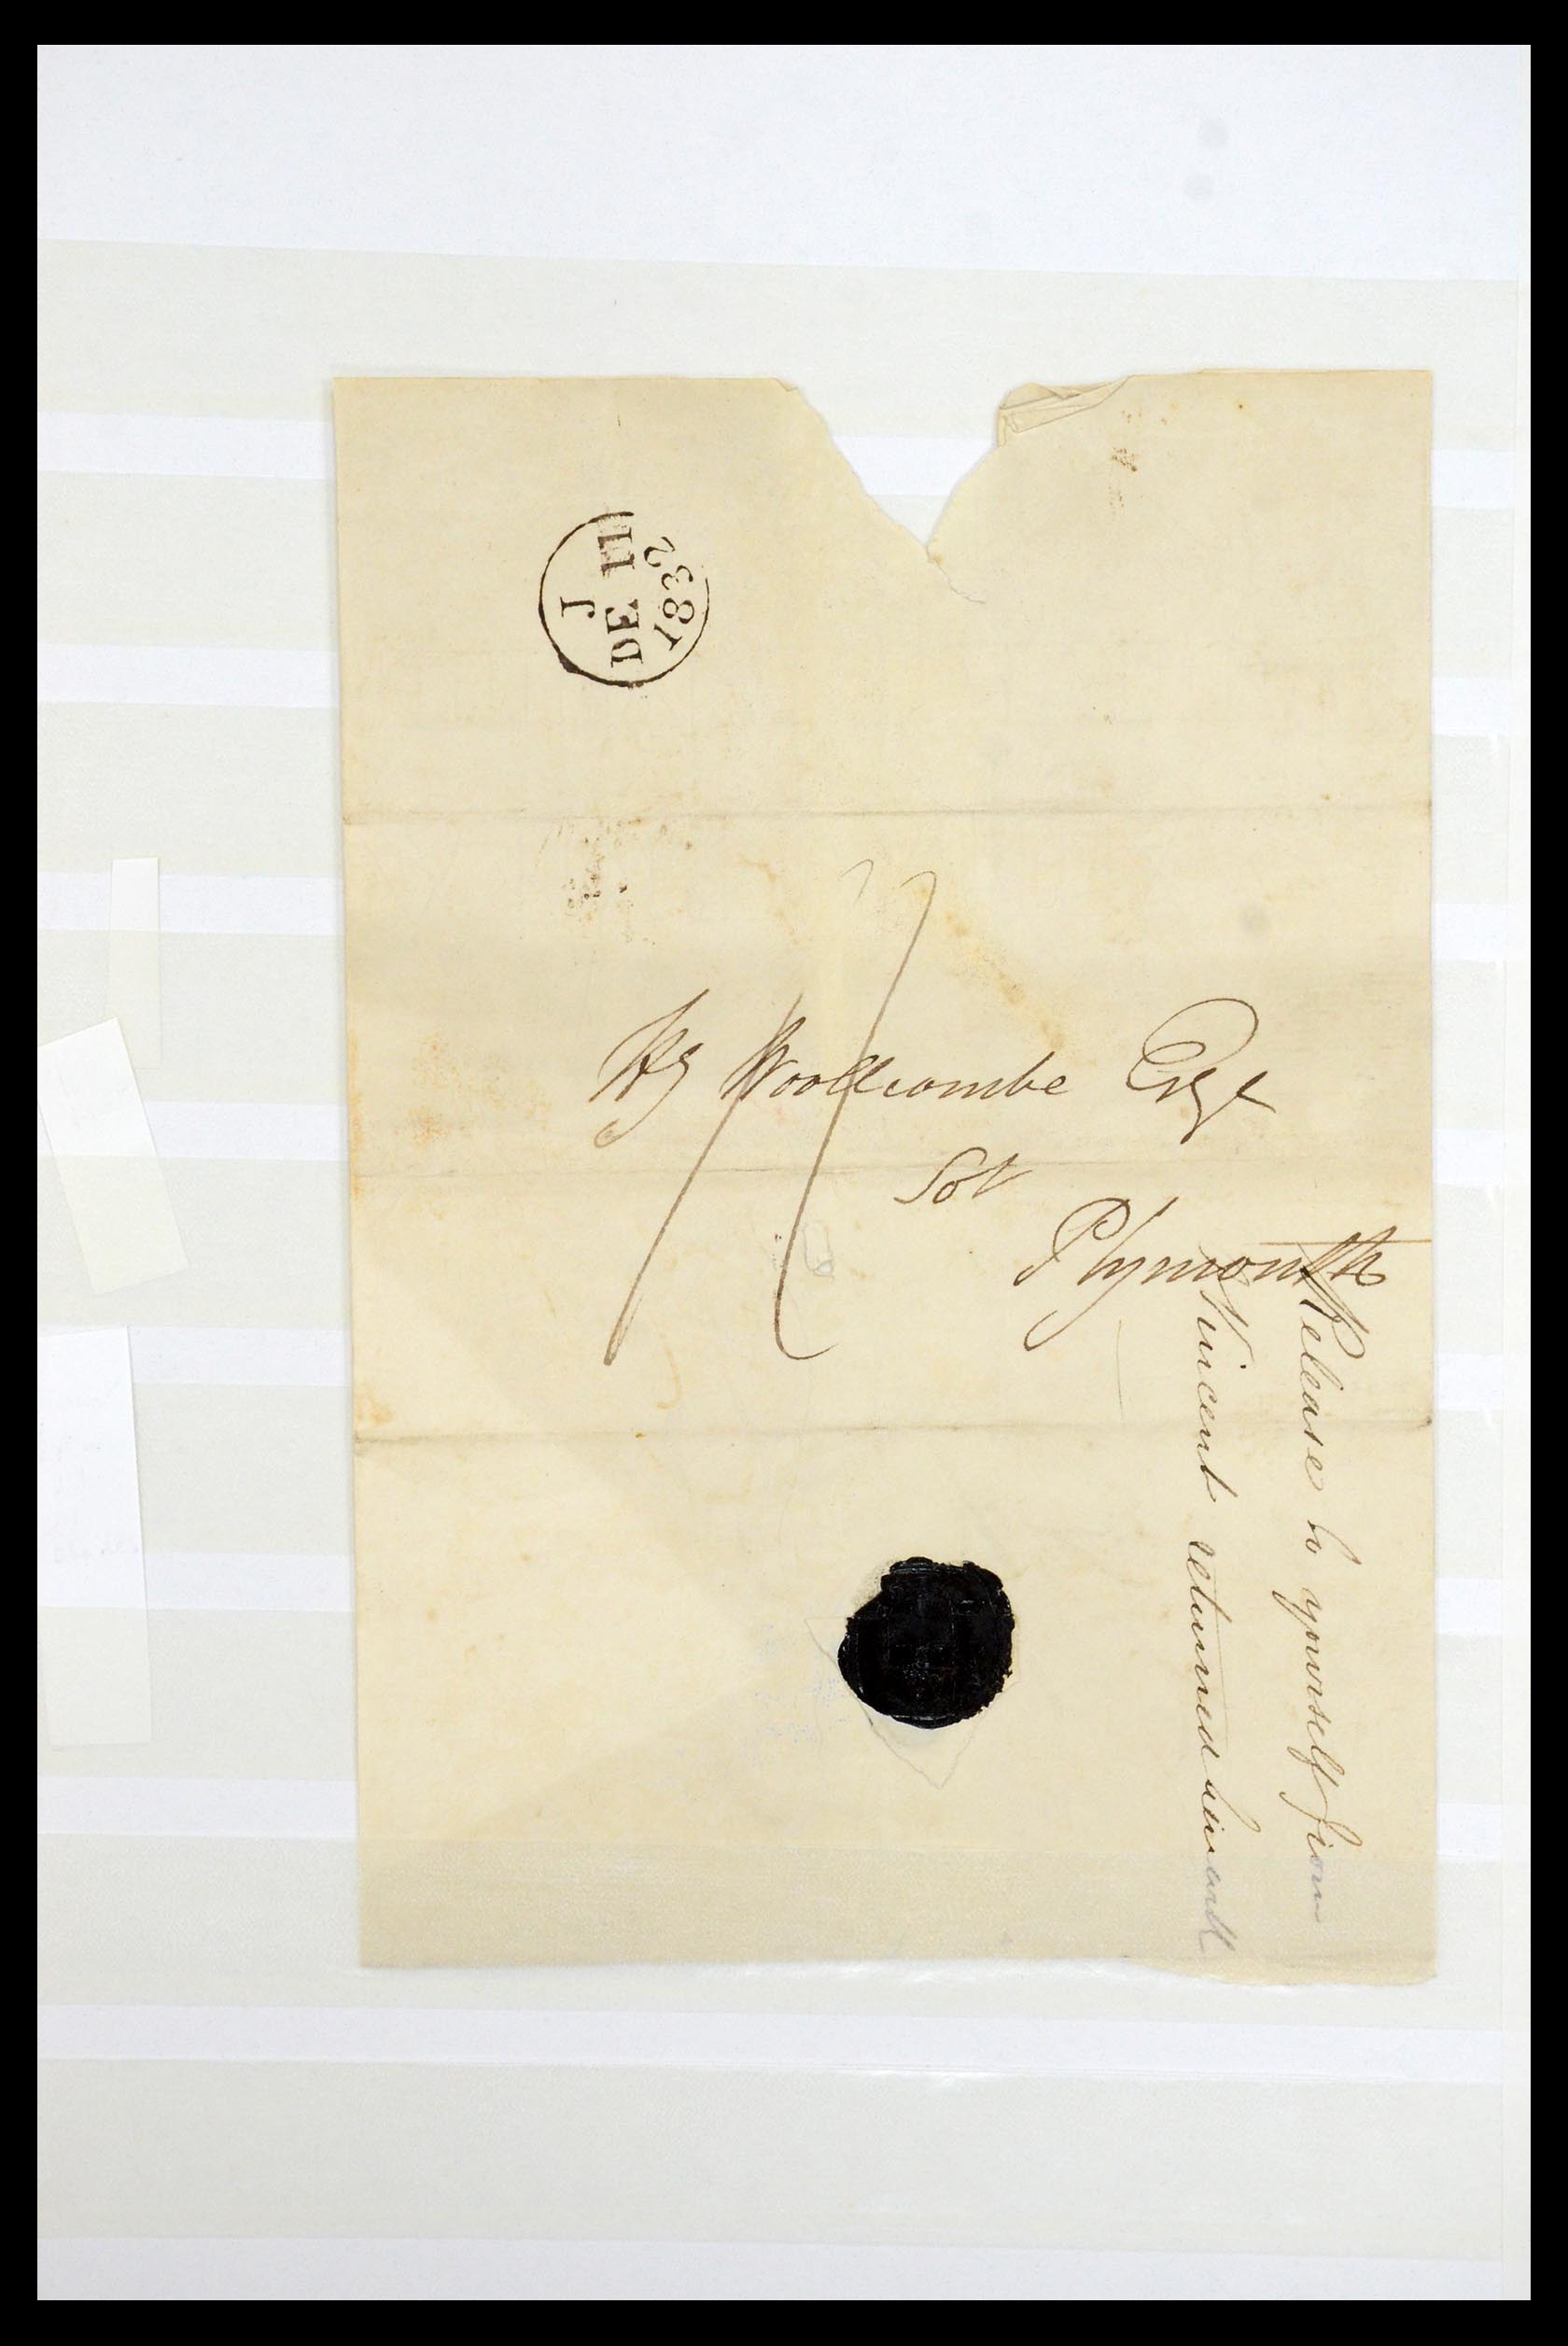 J
DE 11
1832
Hy Woollcombe Esqr
Sol
Plymouth
Release to yourself from
Vincent returned herewith